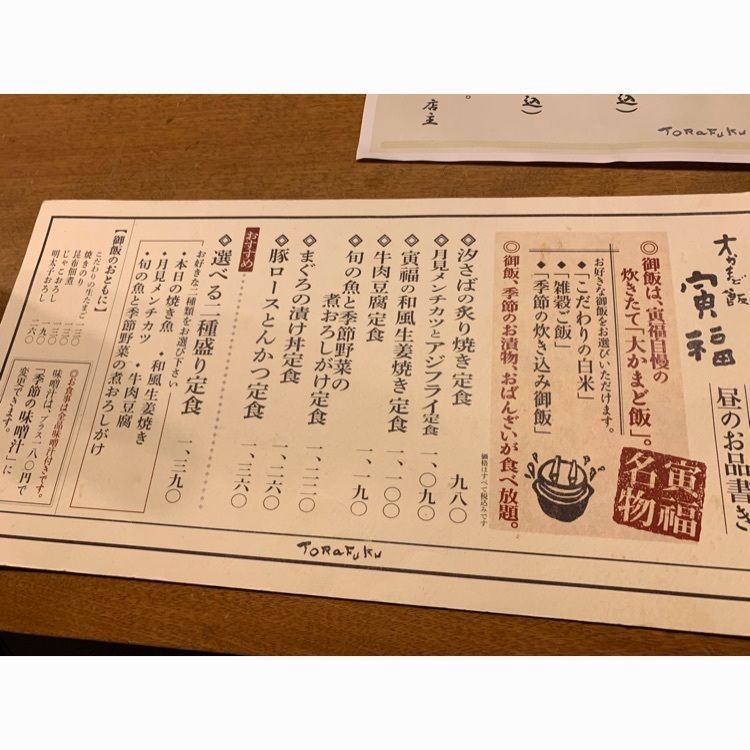 大かまど飯
寅福
昼のお品書き
◎御飯は、寅福自慢の
炊きたて「大かまど飯」。
お好きな御飯をお選びいただけます。
◆「こだわりの白米」
◆「雑穀ご飯」
◆「季節の炊き込み御飯」
◎御飯、季節のお漬物、おばんざいが食べ放題。
寅福
名物
価格はすべて税込みです
◈汐さばの炙り焼き定食 九八〇
◈月見メンチカツとアジフライ定食 一、〇九〇
◈寅福の和風生姜焼き定食 一、一〇〇
◈牛肉豆腐定食 一、一九〇
◈旬の魚と季節野菜の
煮おろしがけ定食
◈まぐろの漬け丼定食 一、二二〇
◈豚ロースとんかつ定食 一、二六〇
おすすめ
◈選べる二種盛り定食 一、三六〇
お好きな二種類をお選び下さい 一、三九〇
・本日の焼き魚 ・和風生姜焼き
・月見メンチカツ ・牛肉豆腐
・旬の魚と季節野菜の煮おろしがけ
【御飯のおともに】
こだわりの生たまご
焼きのり 一三〇
昆布佃煮 一三〇
じゃこおろし 一九〇
明太子おろし 二六〇
◎お食事は全品味噌汁付きです。
味噌汁は、プラス一八〇円で
「季節の味噌汁」に
変更できます。
TORAFUKU
込)
込)
。
店主
TORAFUKU